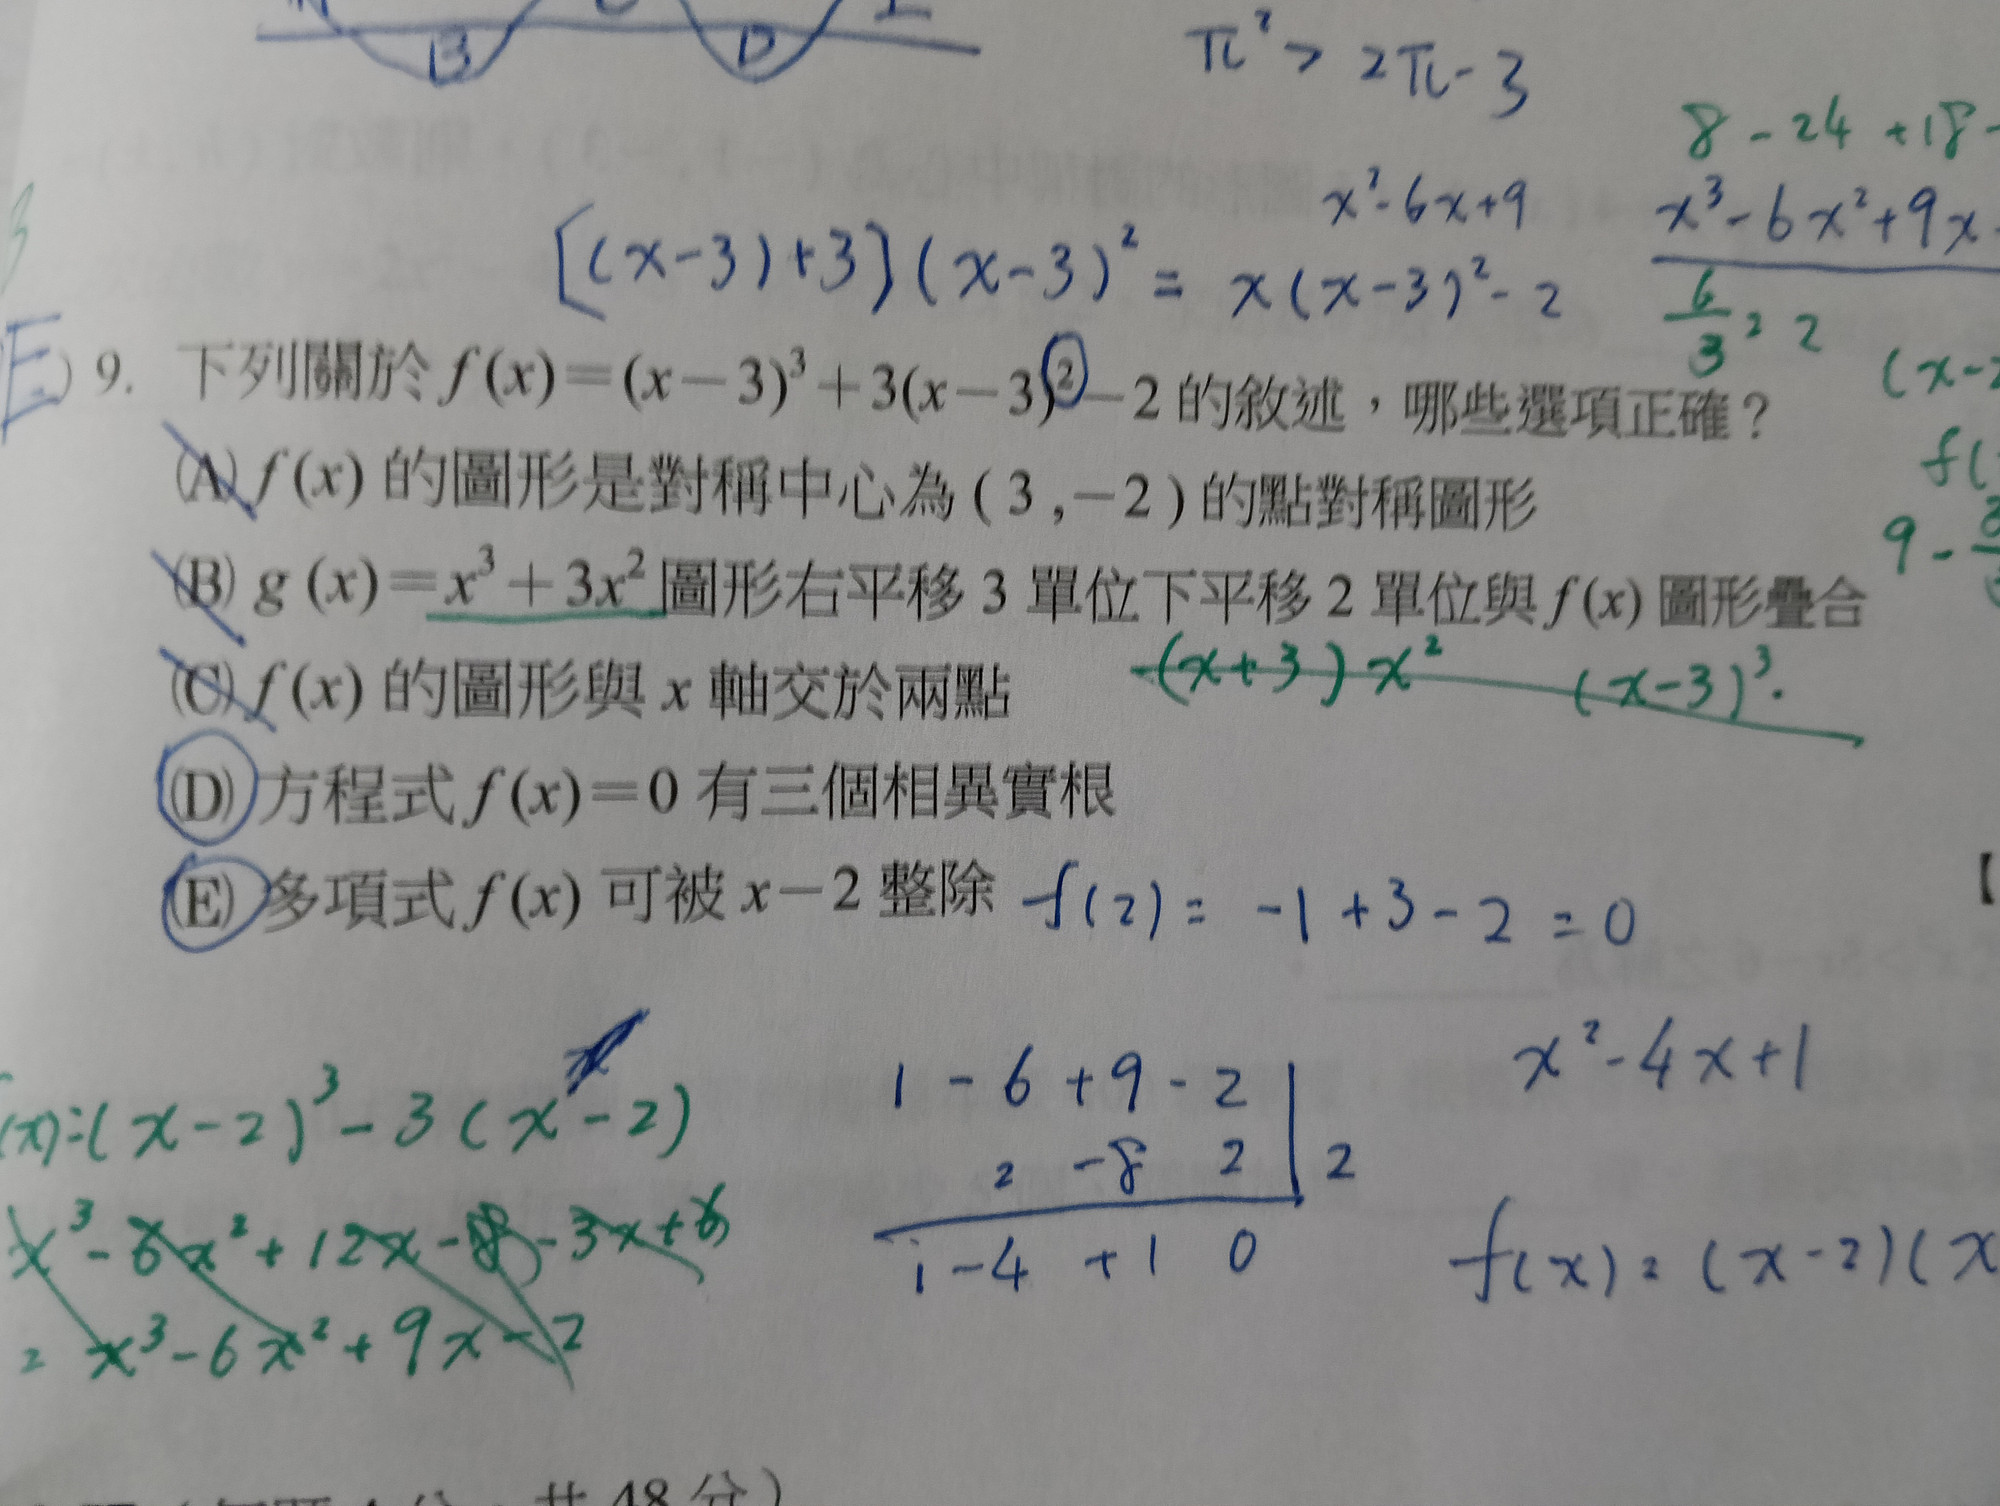 B D
π² > 2π - 3
8 - 24 + 18 -
x² - 6x + 9
x³ - 6x² + 9x
[(x-3)+3](x-3)² = x(x-3)² - 2
6/3 = 2
(x-2
E) 9. 下列關於 f(x)=(x-3)³+3(x-3)²-2 的敘述,哪些選項正確?
f(
(A) f(x) 的圖形是對稱中心為 (3,-2) 的點對稱圖形
9 - 3
(B) g(x)=x³+3x² 圖形右平移 3 單位下平移 2 單位與 f(x) 圖形疊合
(x+3)x² (x-3)³
(C) f(x) 的圖形與 x 軸交於兩點
(D) 方程式 f(x)=0 有三個相異實根
(E) 多項式 f(x) 可被 x-2 整除 f(2) = -1 + 3 - 2 = 0
x² - 4x + 1
(x) = (x-2)³ - 3(x-2)
1 - 6 + 9 - 2
2 - 8 2 | 2
1 - 4 + 1 0
x³ - 6x² + 12x - 8 - 3x + 6
= x³ - 6x² + 9x - 2
f(x) = (x-2)(x
共 48 分)